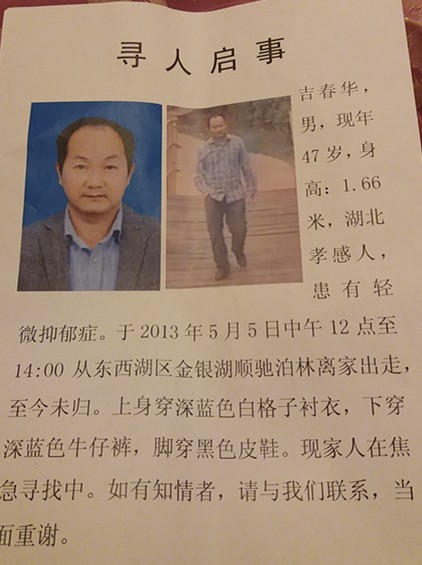 寻人启事
吉春华，
男，现年
47岁，身
高：1.66
米，湖北
孝感人，
患有轻
微抑郁症。于2013年5月5日中午12点至
14:00从东西湖区金银湖顺驰泊林离家出走，
至今未归。上身穿深蓝色白格子衬衣，下穿
深蓝色牛仔裤，脚穿黑色皮鞋。现家人在焦
急寻找中。如有知情者，请与我们联系，当
面重谢。